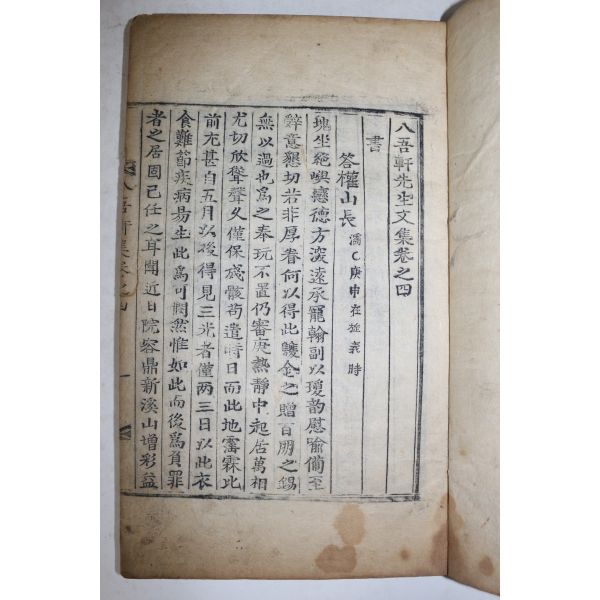 八吾軒先生文集卷之四
書
答權山長 濡〇庚申在旌義時
塊坐絶嶼戀德方深遠承寵翰副以瓊韵慰喻備至
辭意懇切若非厚眷何以得此雙金之贈百朋之錫
無以過也爲之奉玩不置仍審庚熱靜中起居萬相
尤切欣聳聲久僅保殘骸苟遣時日而此地霤霖比
前尤甚自五月以後得見三光者僅两三日以此衣
食難節疾病易生此爲可悶然惟如此而後爲負罪
者之居固已任之耳聞近日院容鼎新溪山增彩益
八吾軒集卷之四 一